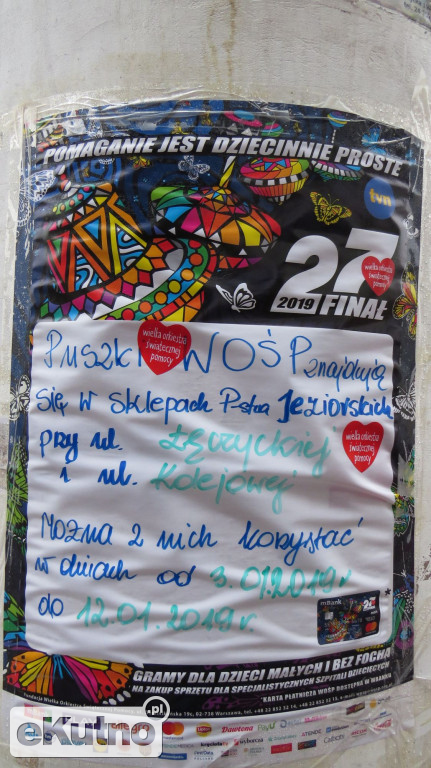 POMAGANIE JEST DZIECINNIE PROSTE
tvn
27
2019 FINAŁ
wielka orkiestra świątecznej pomocy
PUSZKI WOŚP znajdują
się w sklepach Pstwa Jeziorskich
przy ul. Łęczyckiej
i ul. Kolejowej
wielka orkiestra świątecznej pomocy
wielka orkiestra świątecznej pomocy
Można z nich korzystać
w dniach od 3.01.2019r
do 12.01.2019r.
mBank
27
GRAMY DLA DZIECI MAŁYCH I BEZ FOCHA
NA ZAKUP SPRZĘTU DLA SPECJALISTYCZNYCH SZPITALI DZIECIĘCYCH
KARTA PŁATNICZA WOŚP DOSTĘPNA W MBANKU
allegro
Dawtona
PayU
eKutno.pl